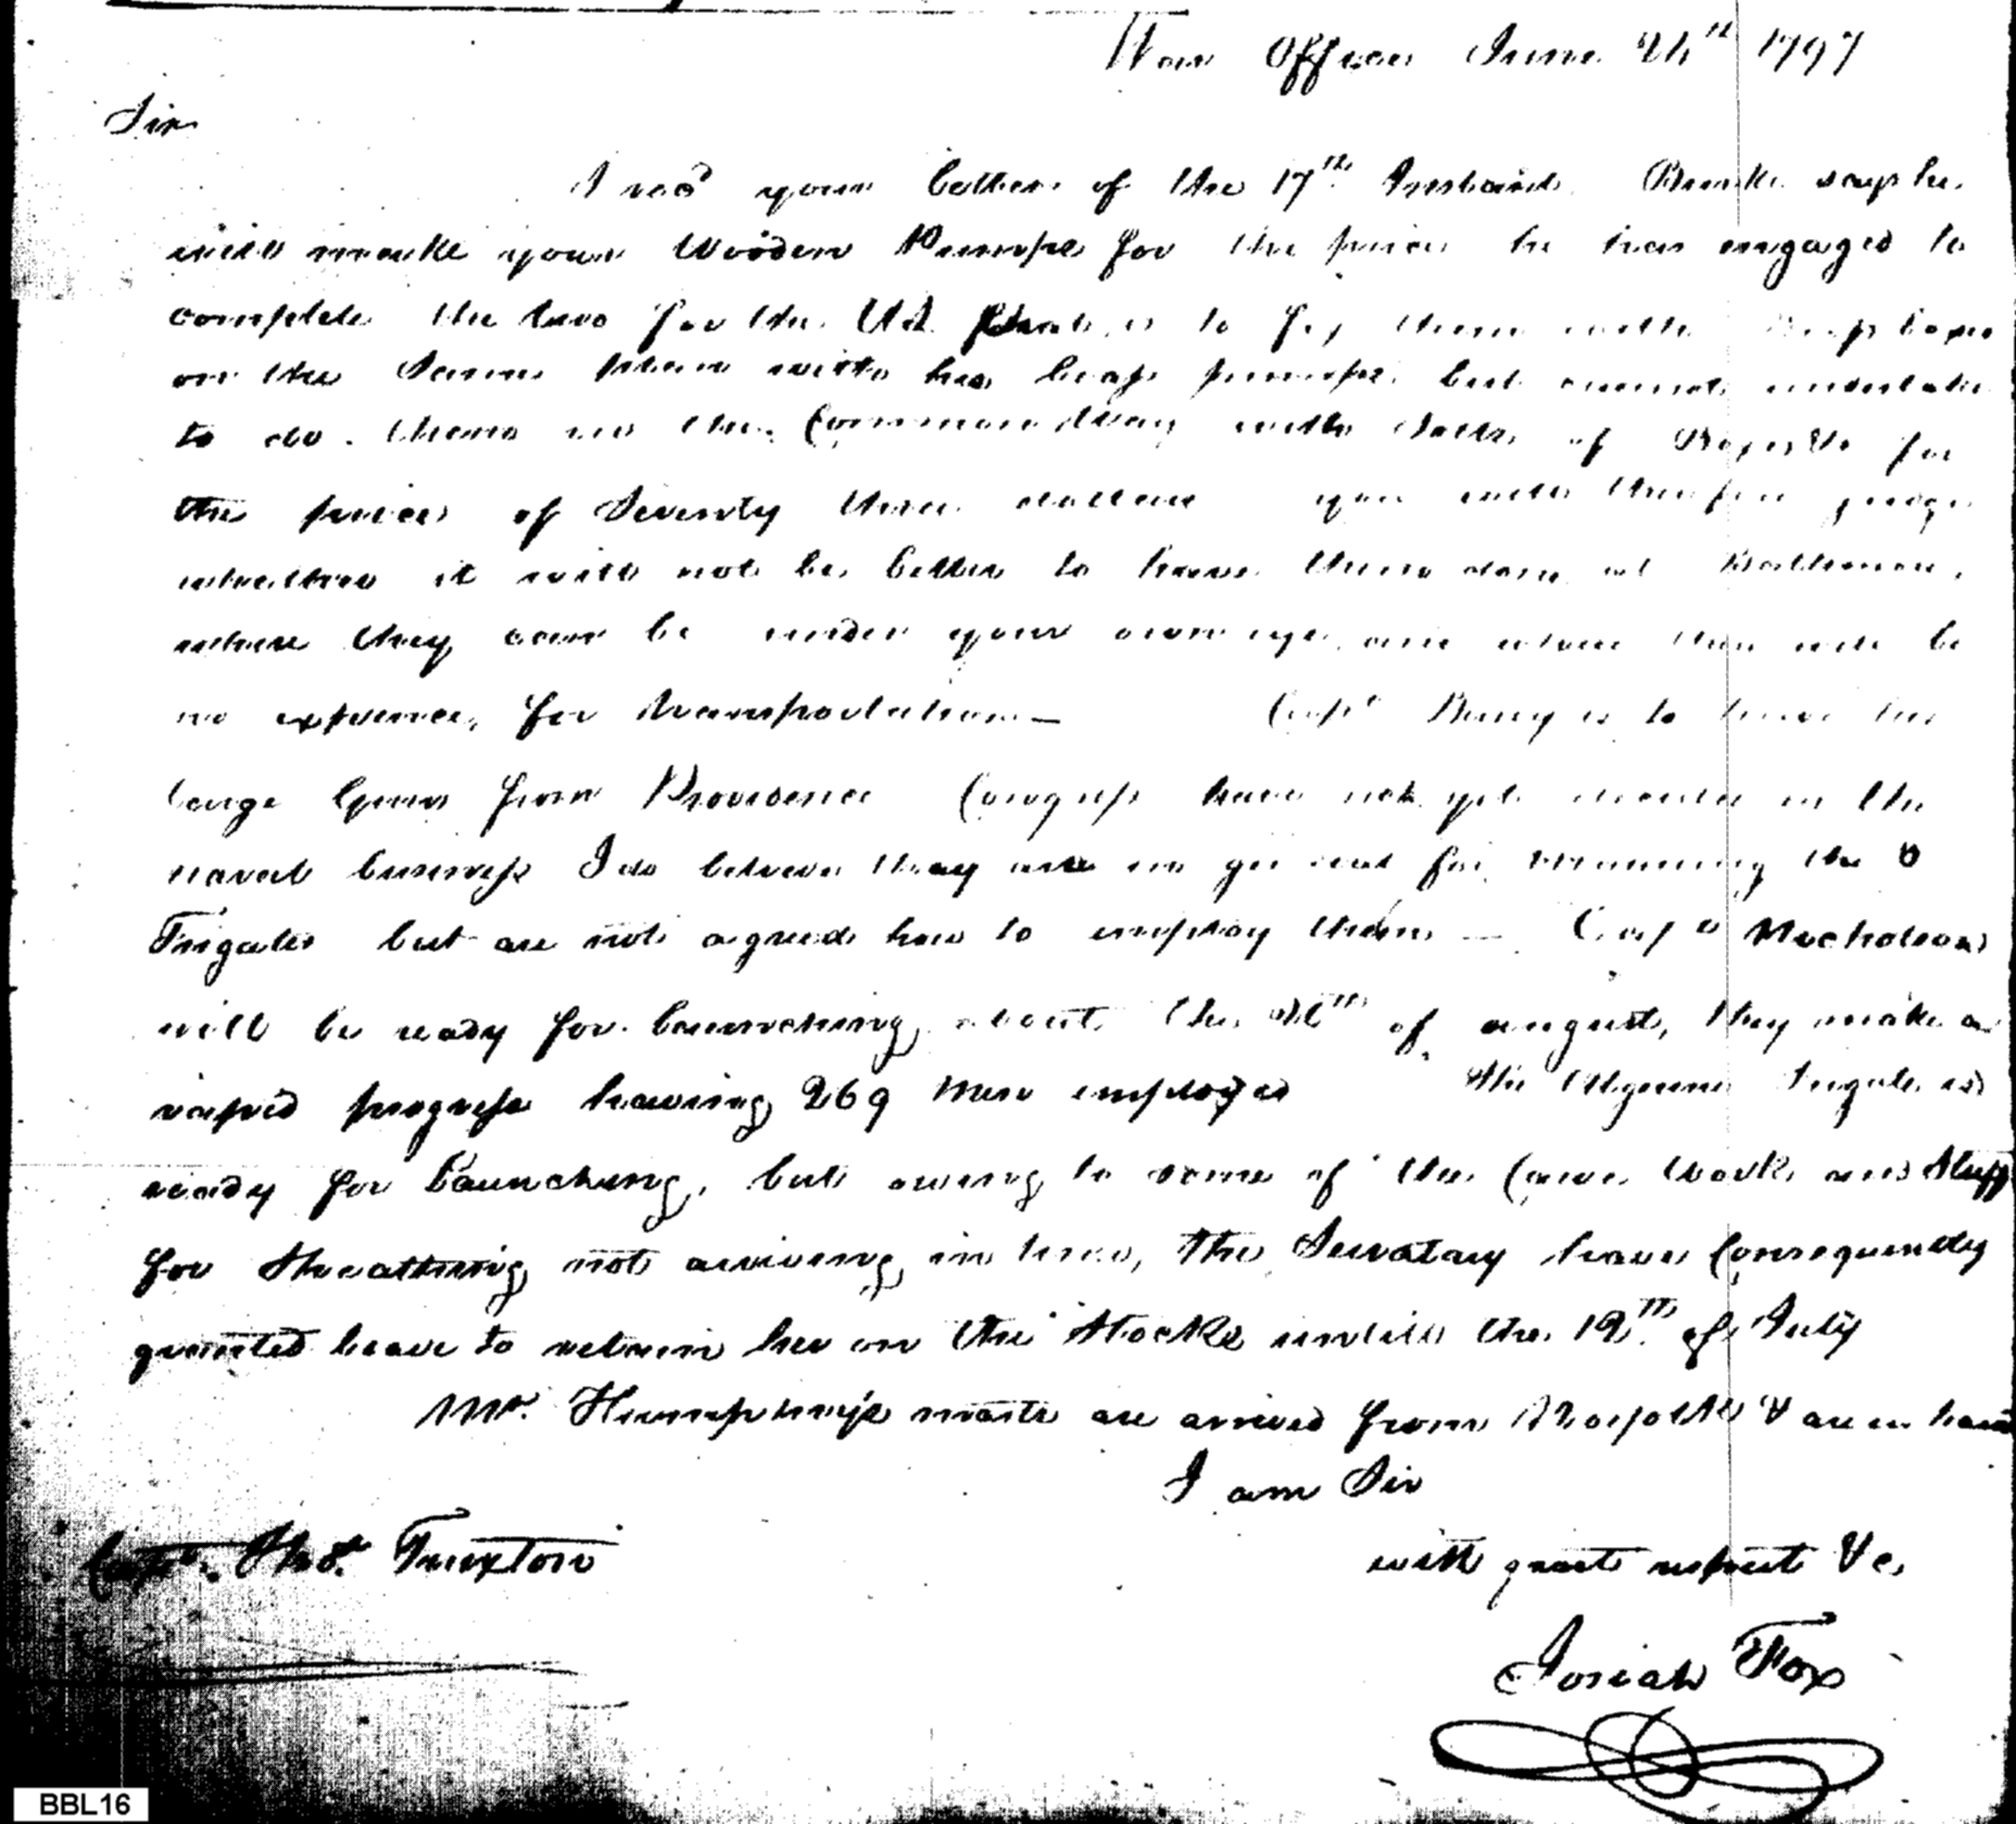 War Office June 24th 1797
Sir
I recd your letter of the 17th Instant. Burke says he
will make your Wooden Pumps for the price he has engaged to
complete the two for the U.S. that is to fix them with boxes
on the Same plan with his pumps but cannot undertake
to do them in the Common Way with of Boxes &c for
the price of Seventy three dollars you will therefore judge
whether it will not be better to have them done at Baltimore,
where they can be under your own eye, and where there will be
no expence, for transportation — Capt Barry is to have his
large Guns from Providence Congress have not yet decided on the
naval business I do believe they are in general for manning the 3
Frigates but are not agreed how to employ them — Capt Nicholson
will be ready for launching about the of august, they make a
rapid progress having 269 Men employed The Algerine Frigate is
ready for Launching, but owing to some of the Carve Work and Stuff
for Sheathing not arriving in time, the Secretary have Consequently
granted leave to retain her on the Stocks untill the 12th of July
Mr. Humphreys masts are arrived from Norfolk & are in hand
I am Sir
with great respect &c
Capt. Thos. Truxton
Josiah Fox
BBL16